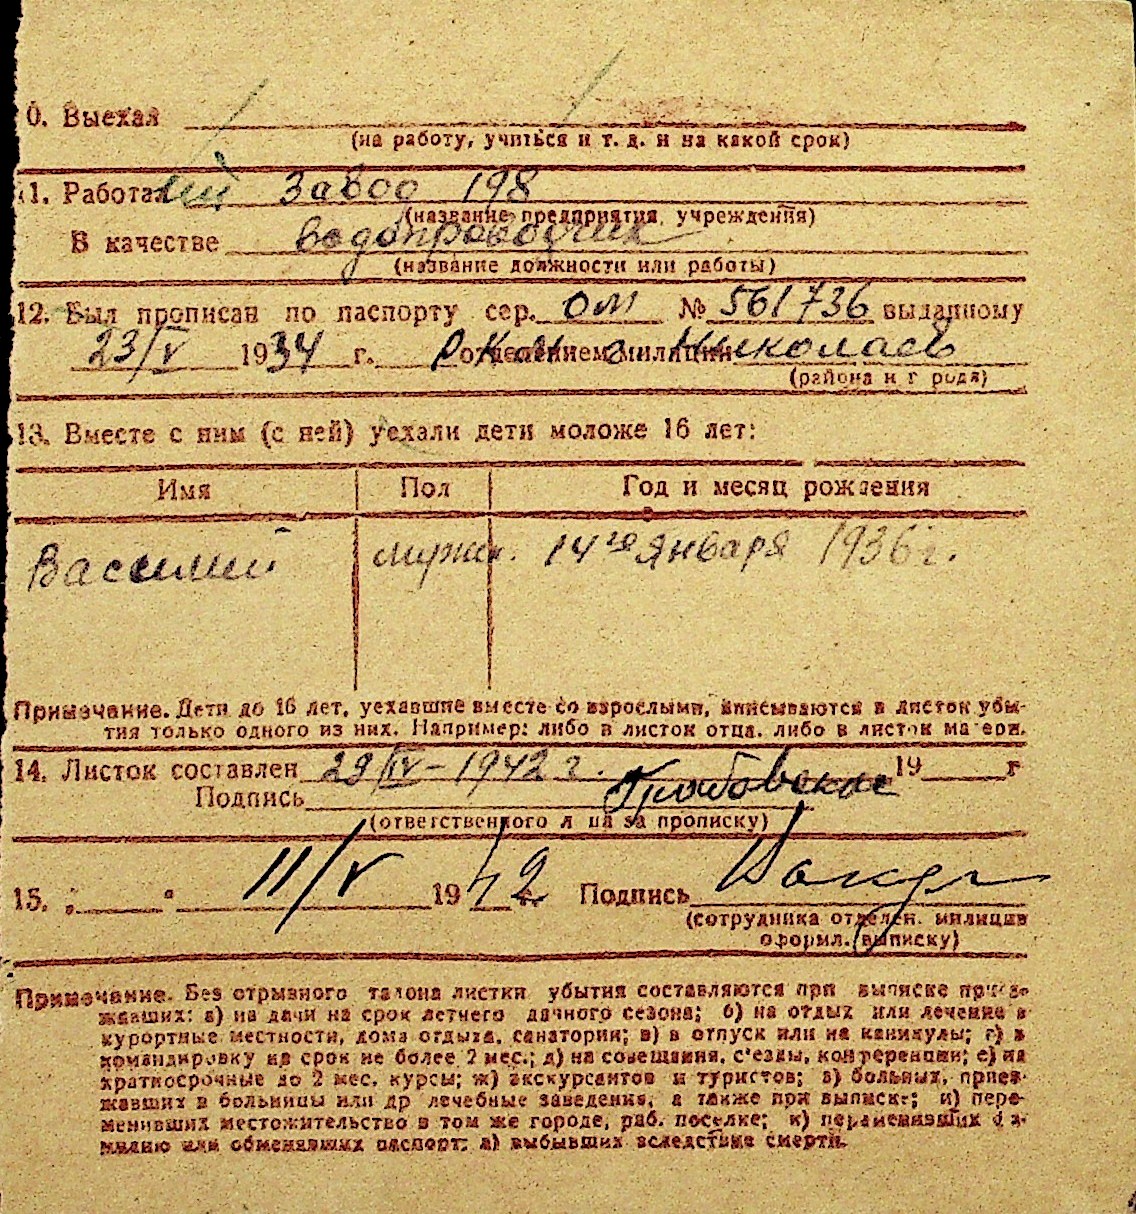 0. Выехал
(на работу, учиться и т. д. и на какой срок)
1. Работал Завод 198
(название предприятия, учреждения)
В качестве водопроводчик
(название должности или работы)
12. Был прописан по паспорту сер. ОМ № 561736 выданному
23/V 1934 г. РКМ г. отделением милиции Николаев
(района и города)
13. Вместе с ним (с ней) уехали дети моложе 16 лет:
Имя Пол Год и месяц рождения
Василий мужск. 14го января 1936 г.
Примечание. Дети до 16 лет, уехавшие вместе со взрослыми, вписываются в листок убы-
тия только одного из них. Например: либо в листок отца, либо в листок матери.
14. Листок составлен 29/IV-1942 г. 19 г
Подпись
(ответственного лица за прописку)
15. „ “ 11/V 1942 г. Подпись
(сотрудника отделен. милиции
оформл. выписку)
Примечание. Без отрывного талона листки убытия составляются при выписке приез-
жавших: а) на дачи на срок летнего дачного сезона; б) на отдых или лечение в
курортные местности, дома отдыха, санатории; в) в отпуск или на каникулы; г) в
командировку на срок не более 2 мес.; д) на совещания, с'езды, конференции; е) на
краткосрочные до 2 мес. курсы; ж) экскурсантов и туристов; з) больных, приез-
жавших в больницы или др лечебные заведения, а также при выписке; и) пере-
менивших местожительство в том же городе, раб. поселке; к) переменивших фа-
милию или обменявших паспорт; л) выбывших вследствие смерти.